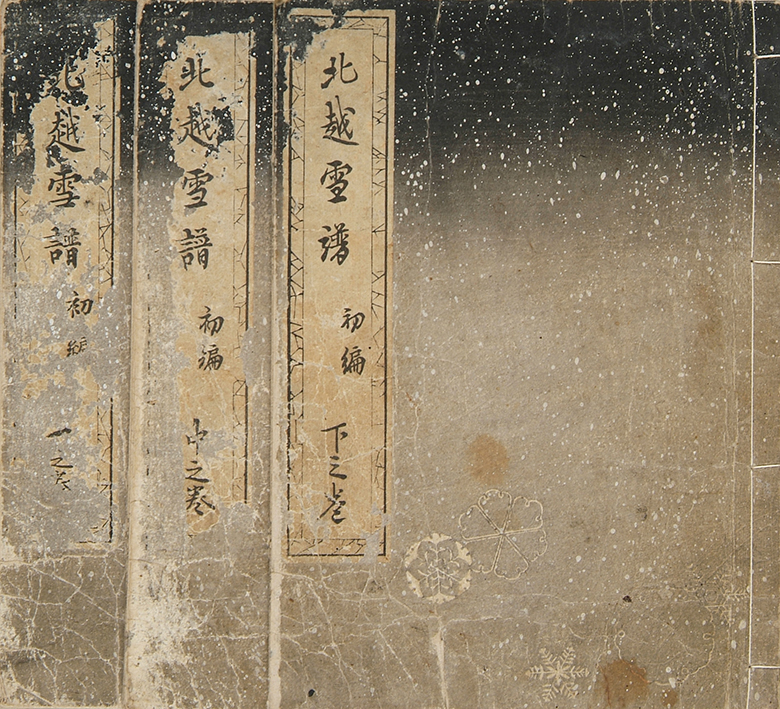 北越雪譜 初編 下之巻
北越雪譜 初編 中之巻
北越雪譜 初編 之巻